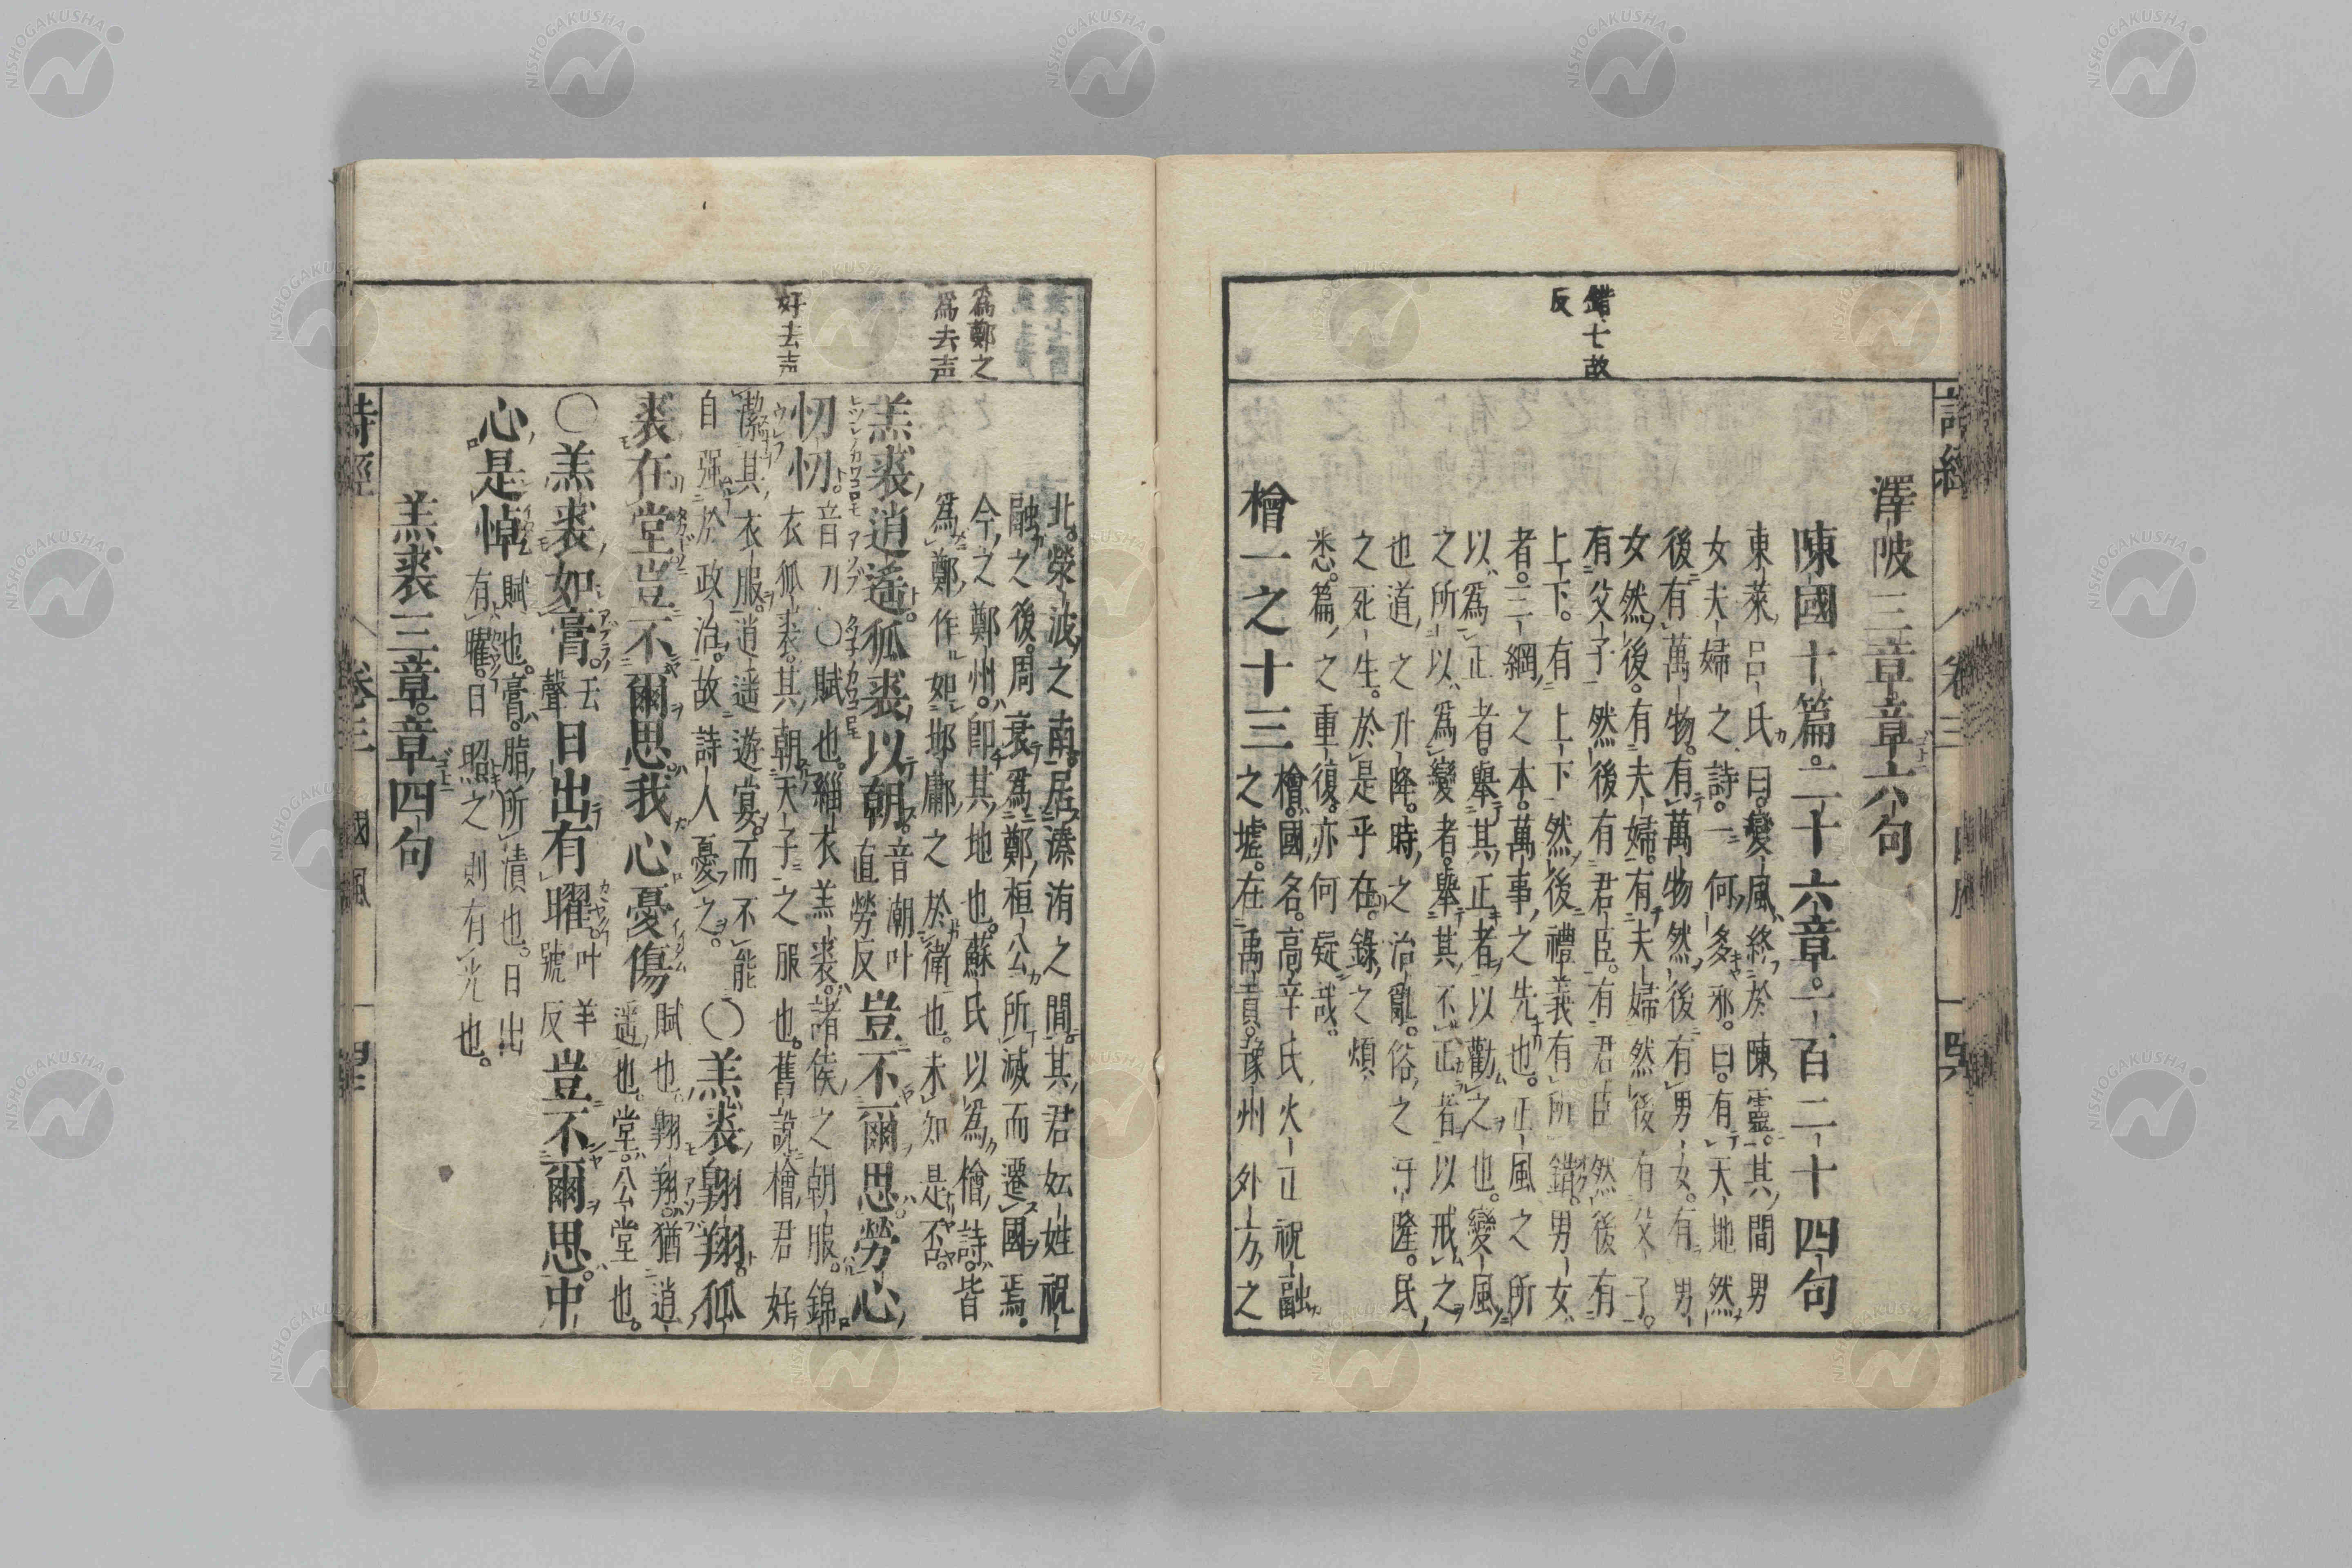 詩經 卷三
錯七故
反
澤陂三章章六句
陳國十篇。二十六章。一百二十四句
東萊呂氏曰。變風終於陳靈。其間男
女夫婦之詩。一何多邪。曰。有天地然
後有萬物。有萬物然後有男女。有男
女然後。有夫婦。有夫婦然後有父子。
有父子然後有君臣。有君臣然後有
上下。有上下然後禮義有所錯。男女
者。三綱之本。萬事之先也。正風之所
以爲正者。舉其正者以勸之也。變風
之所以爲變者。舉其不正者以戒之
也道之升降。時之治亂。俗之汙隆。民
之死生。於是乎在。錄之煩
悉。篇之重復。亦何疑哉。
檜一之十三
檜。國名。高辛氏火正祝融
之墟。在禹貢。豫州外方之
爲鄭之
爲去声
好去声
北。滎波之南。居溱洧之間。其君妘姓祝
融之後。周衰爲鄭桓公所滅而遷國焉。
今之鄭州。即其地也。蘇氏以爲檜詩。皆
爲鄭作。如邶鄘之於衛也。未知是否。
羔裘逍遙。狐裘以朝。音潮叶直勞反豈不爾思。勞心
忉忉。音刀○賦也。緇衣羔裘。諸侯之朝服。錦
衣狐裘。其朝天子之服也。舊說檜君好
潔其衣服。逍遙遊宴。而不能
自强於政治。故詩人憂之。○羔裘翱翔。狐
裘在堂豈不爾思我心憂傷賦也。翱翔。猶逍
遙也。堂。公堂也。
○羔裘如膏。去聲日出有曜。叶羊號反豈不爾思。中
心是悼賦也。膏。脂所漬也。日出
有曜。日照之則有光也。
羔裘三章。章四句
詩經 卷三 國風